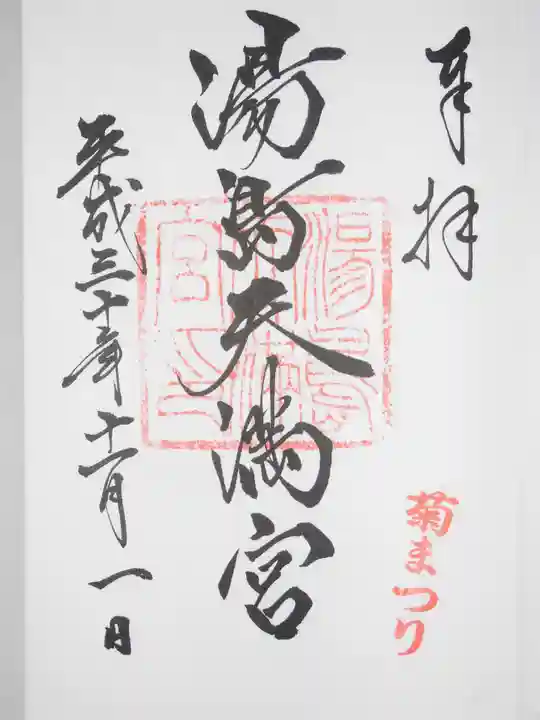 奉拝
菊まつり
湯島天満宮
湯島天満宮印
平成三十年十一月一日